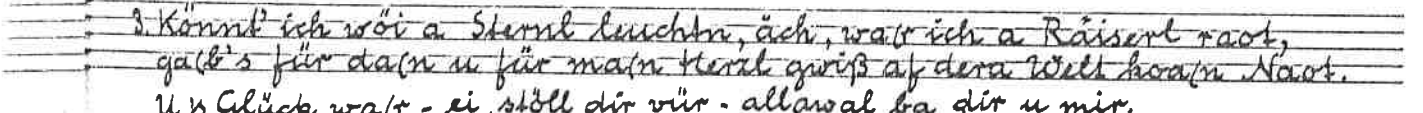 3. Könnt' ich wöi a Sternl leuchtn, äch, wa(r ich a Räiserl raot,
ga(b's für da(n u für ma(n Herzl gwiß af dera Welt koa(n Naot.
U 's Glück wa(r - ei stöll dir vür - allawal ba dir u mir.